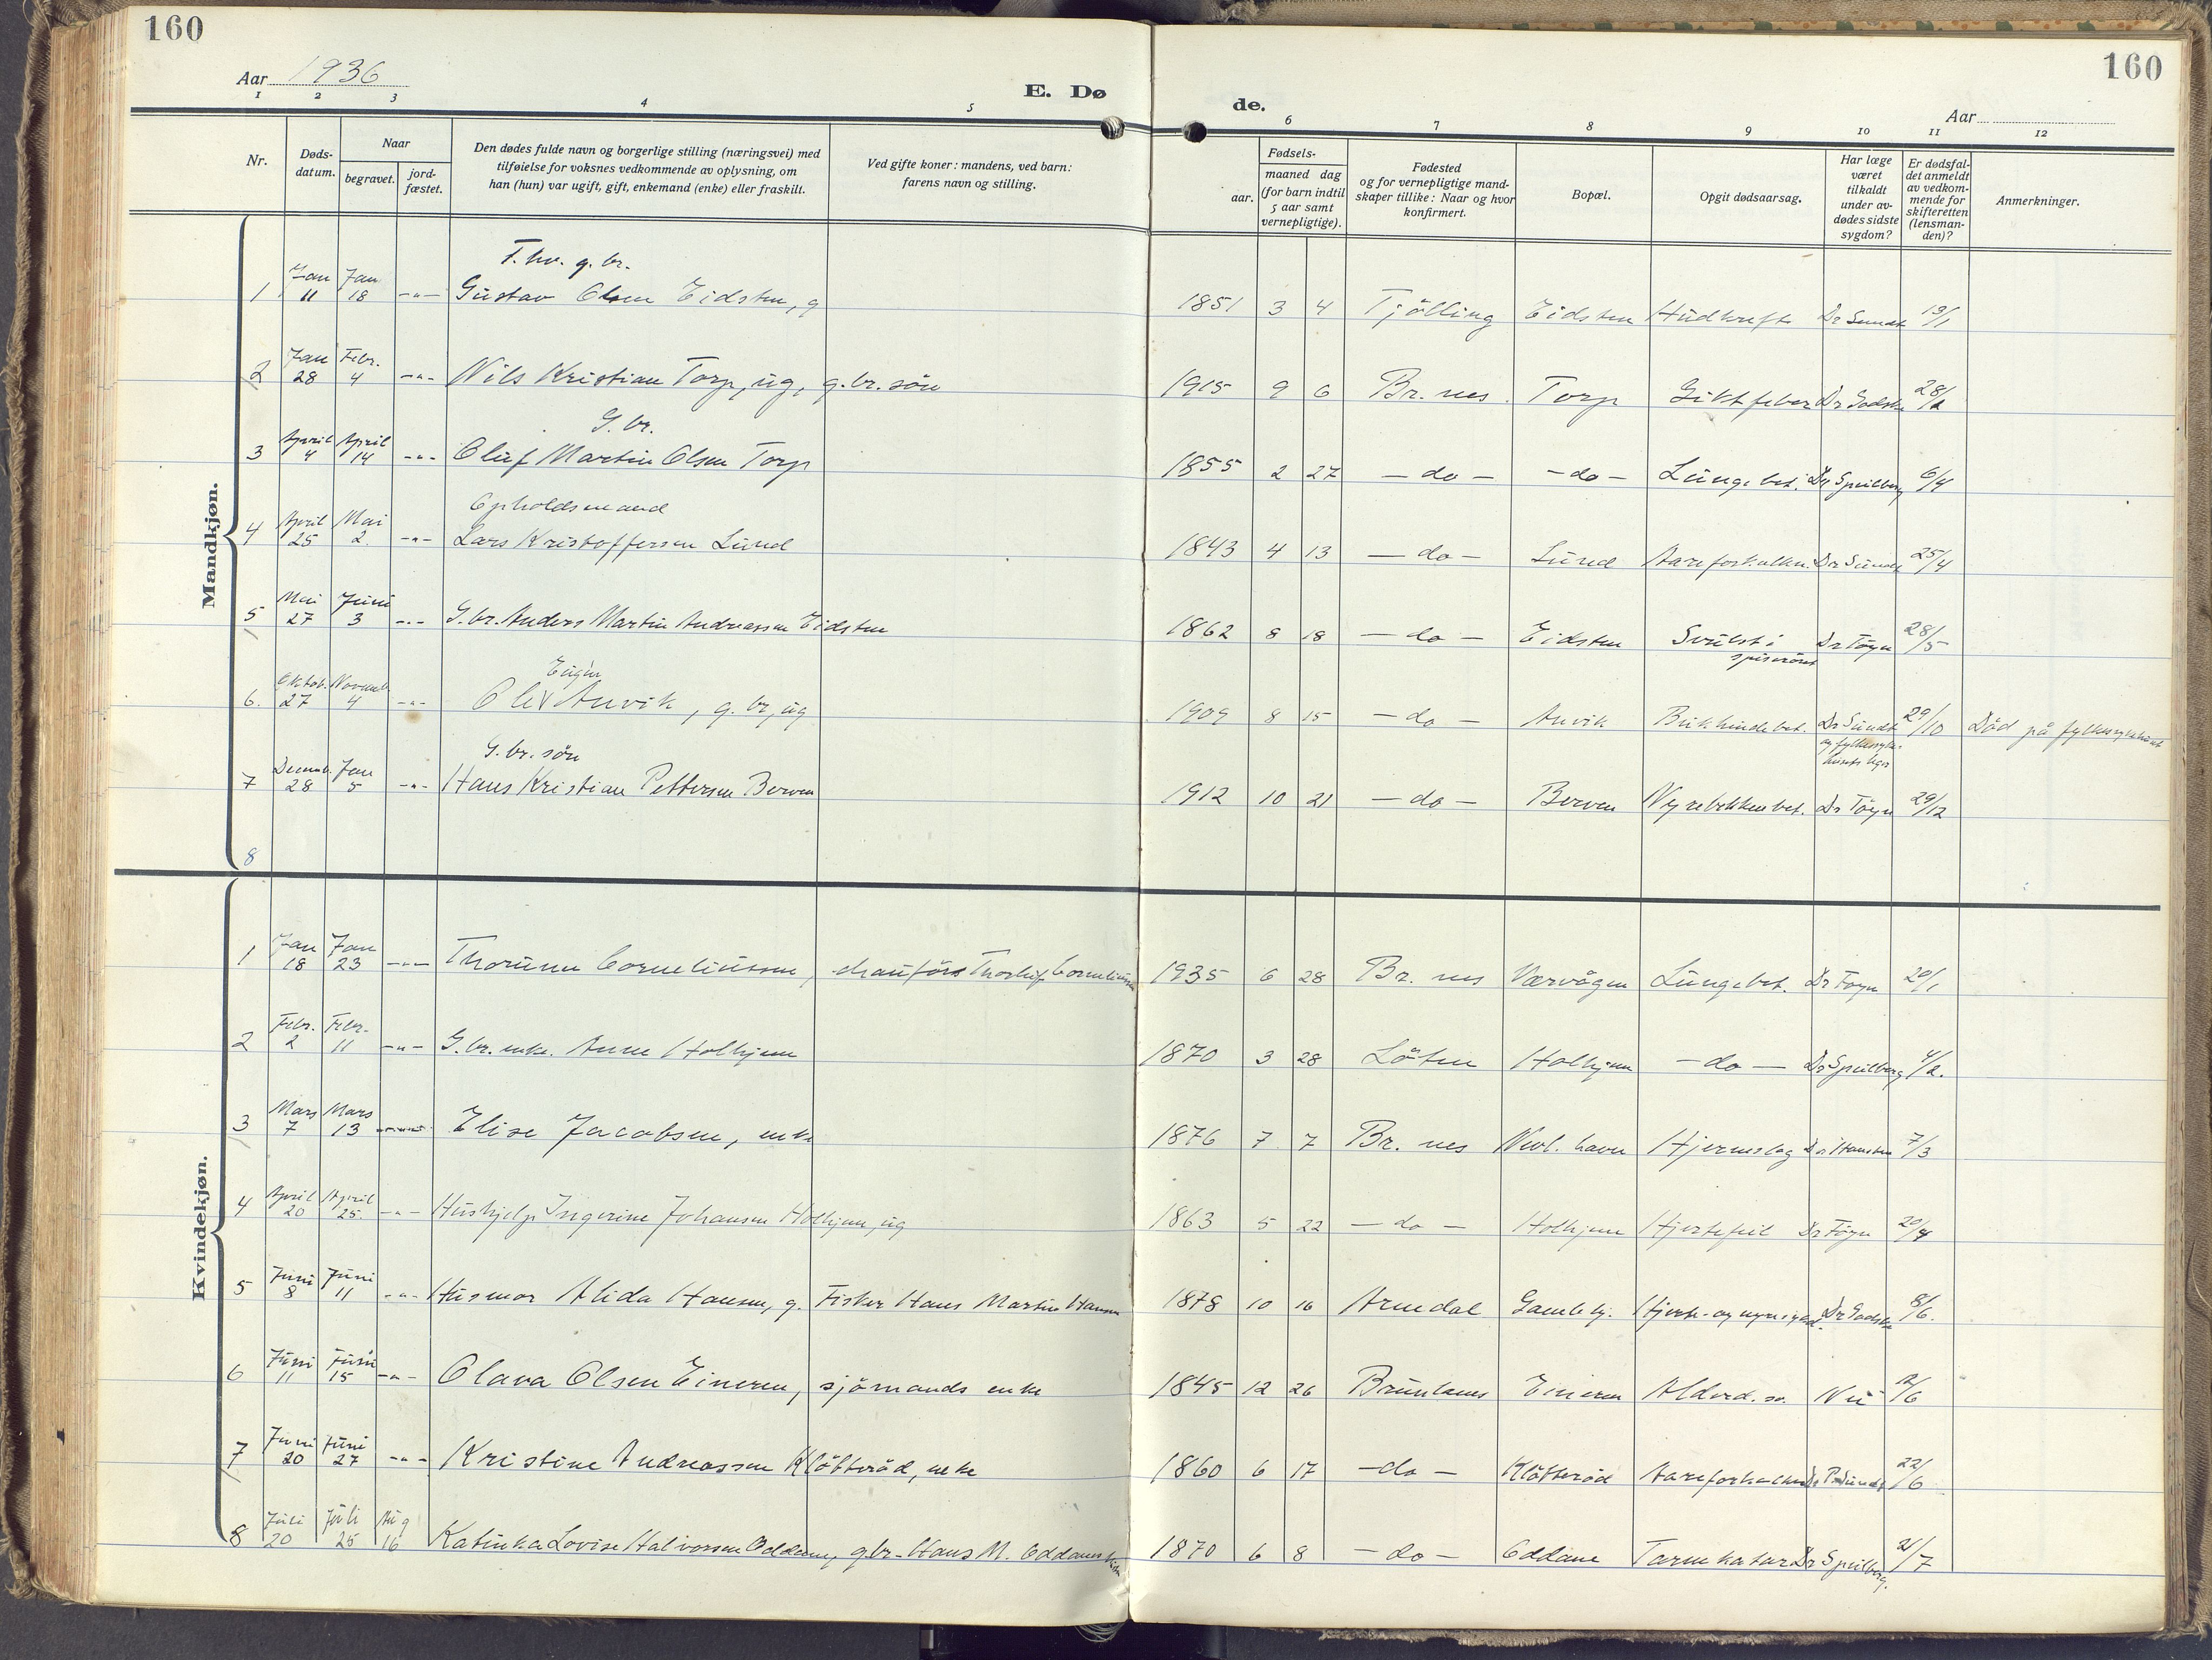 160
160
Aar 1936
E. Dø
de.
Aar
1 2 3 4 5 6 7 8 9 10 11 12
Nr.
Døds-
datum.
Naar
begravet.
jord-
fæstet.
Den dødes fulde navn og borgerlige stilling (næringsvei) med
tilføielse for voksnes vedkommende av oplysning, om
han (hun) var ugift, gift, enkemand (enke) eller fraskilt.
Ved gifte koner: mandens, ved barn:
farens navn og stilling.
Fødsels-
aar.
maaned dag
(for barn indtil
5 aar samt
vernepligtige).
Fødested
og for vernepligtige mand-
skaper tillike: Naar og hvor
konfirmert.
Bopæl.
Opgit dødsaarsag.
Har læge
været
tilkaldt
under av-
dødes sidste
sygdom?
Er dødsfal-
det anmeldt
av vedkom-
mende for
skifteretten
(lensman-
den)?
Anmerkninger.
Mandkjøn.
T. hv. g. br.
1 Jan 11 Jan 18 -"- Gustav Olsen Eidsten, g 1851 3 4 Tjölling Eidsten Hudkreft Dr Sundt 13/1
2 Jan 28 Febr. 4 -"- Nils Kristian Torp, ug, g. br. sön 1915 9 6 Br. nes Torp Giktfeber Dr Godske 28/2
G. br.
3 April 4 April 14 -"- Oluf Martin Olsen Torp 1855 2 27 - do - - do - Lungebet. Dr Speilberg 6/4
Opholdsmand
4 April 25 Mai 2. -"- Lars Kristoffersen Lund 1843 4 13 - do - Lund Aareforkalkn. Dr Sundt 25/4
5 Mai 27 Juni 3 -"- G. br. Anders Martin Andreassen Eidsten 1862 8 18 - do - Eidsten Svulst i Dr Töyn 28/5
spiserøret
Eugen
6. Oktob. 27 Novemb. 4 -"- Olav Anvik, g. br, ug 1909 8 15 - do - Anvik Bukhindebet. Dr Sundt 29/10 Död på fylkessykehuset
og fylkessyke-
husets leger
G. br. sön
7 Decemb. 28 Jan 5 -"- Hans Kristian Pettersen Berven 1912 10 21 - do - Berven Nyrebekkenbet. Dr Töyn 29/12
8
Kvindekjøn.
1 Jan 18 Jan 23 -"- Thorunn Corneliussen, chauför Thorleif Corneliussen 1935 6 28 Br. nes Værvågen Lungebet. Dr Töyn 20/1
2 Febr. 2 Febr. 11 -"- G. br. enke. Anne Holhjem 1870 3 28 Löten Holhjem - do - Dr Speilberg 4/2.
3 Mars 7 Mars 13 Elise Jacobsen, enke 1876 7 7 Br. nes Nevl. havn Hjerneslag Dr Hansten 7/3
4 April 20 April 25. -"- Hushjelp Ingerine Johansen Holhjem, ug 1863 5 22 - do - Holhjem Hjertefeil Dr Töyn 20/4
5 Juni 8 Juni 11 -"- Husmor Alida Hansen, g. Fisker Hans Martin Hansen 1878 10 16 Arendal Gamleby. Hjerte- og nyresygd. Dr Godske 8/6.
6 Juni 11 Juni 15 -"- Olava Olsen Eineren, sjömands enke 1845 12 26 Brunlanes Eineren Alderd. sv. Nei 12/6
7 Juni 20 Juni 27 -"- Kristine Andreassen Klötteröd, enke 1860 6 17 - do - Klötteröd Aareforkalkn. Dr P. Sundt 22/6
8 Juli 20 Juli 25 Aug 16 Katinka Lovise Halvorsen Oddane, gbr. Hans M. Oddanes 1870 6 8 - do - Oddane Tarmkatar Dr Speilberg. 21/7